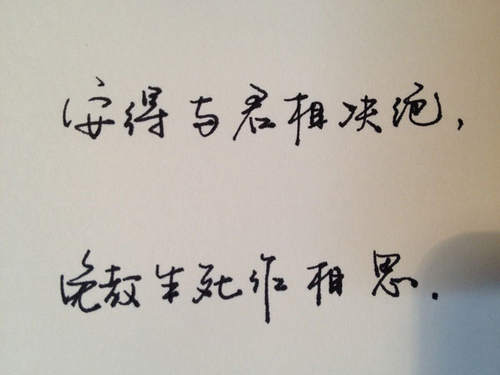 安得与君相决绝，
免教生死作相思．